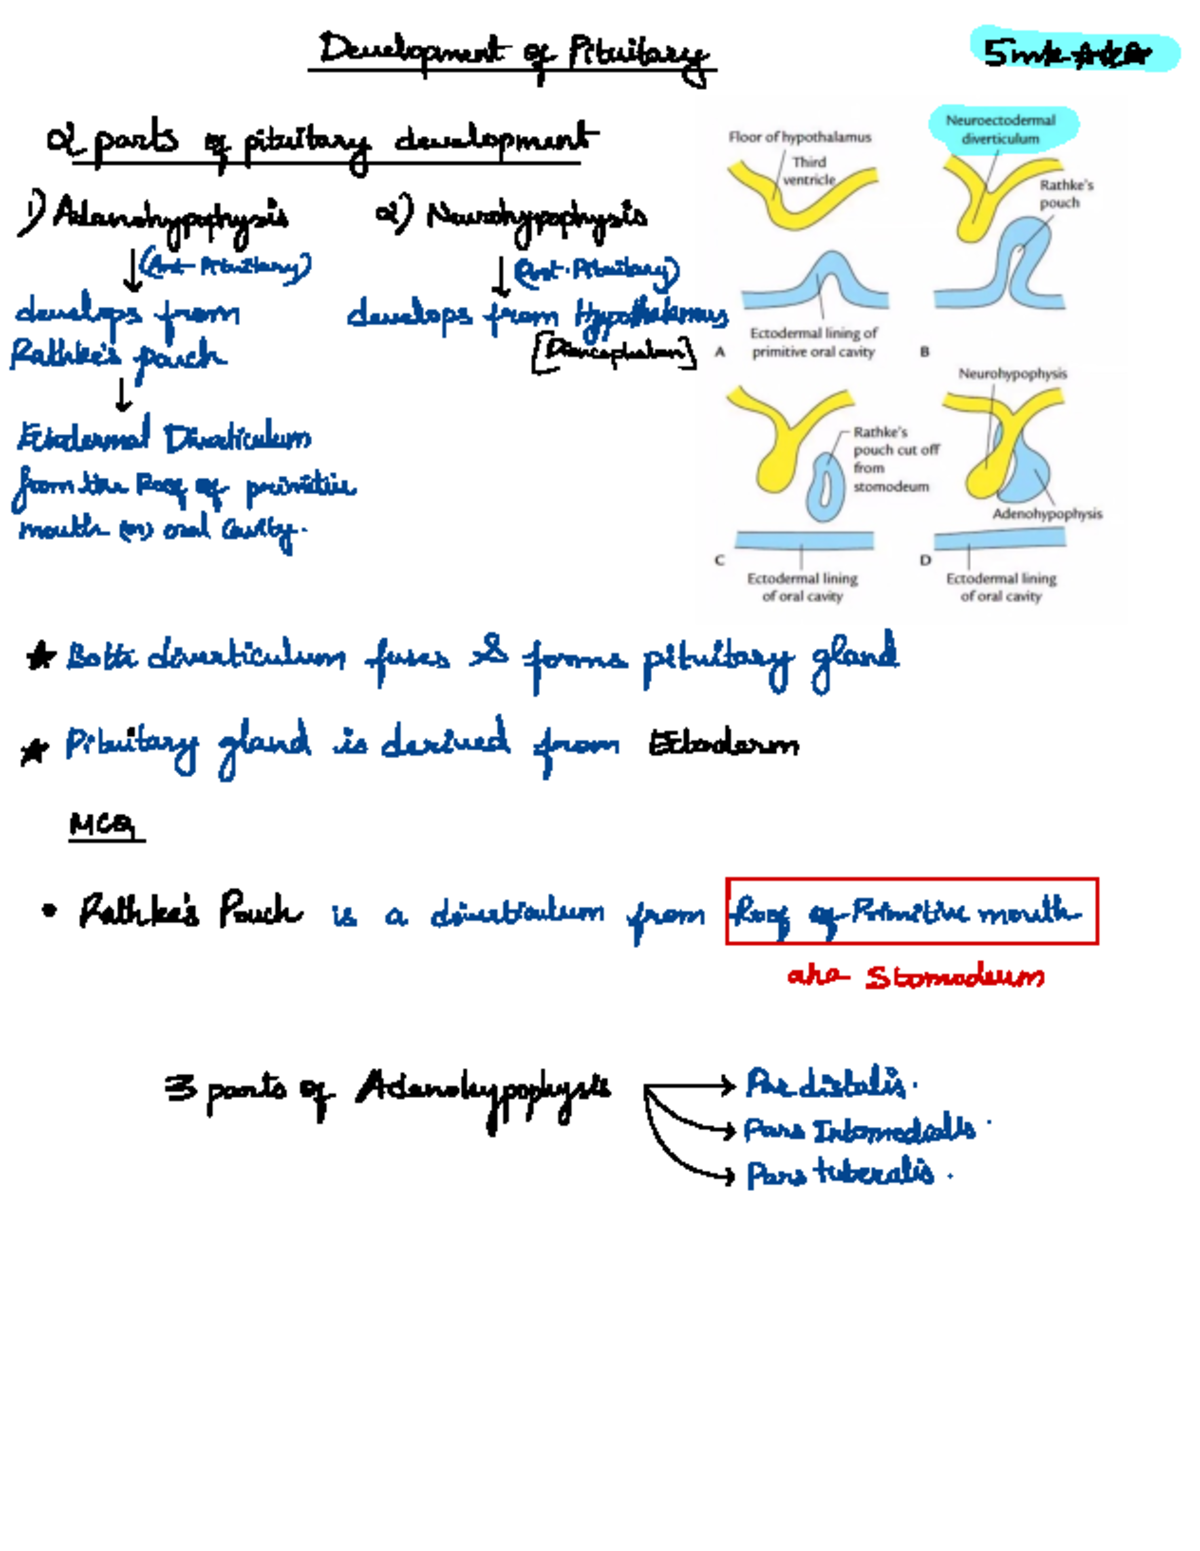 Development of Pituitary
5mk
2 parts of pituitary development
1) Adenohypophysis
(Ant Pituitary)
develops from
Rathke's pouch
Ectodermal Diverticulum
from the Roof of primitive
mouth (or) oral cavity.
2) Neurohypophysis
(Post. Pituitary)
develops from Hypothalamus
[Diencephalon]
Floor of hypothalamus
Third
ventricle
Ectodermal lining of
primitive oral cavity
A
Neuroectodermal
diverticulum
Rathke's
pouch
B
Rathke's
pouch cut off
from
stomodeum
C
Ectodermal lining
of oral cavity
Neurohypophysis
Adenohypophysis
D
Ectodermal lining
of oral cavity
★ Both diverticulum fuses & forms pituitary gland
★ Pituitary gland is derived from Ectoderm
MCQ
• Rathke's Pouch is a diverticulum from Roof of Primitive mouth
aka Stomodeum
3 parts of Adenohypophysis
Par distalis.
Pars Intermedialis.
Pars tuberalis.